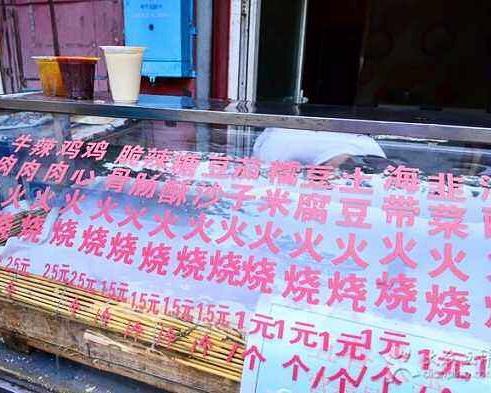 牛肉火烧
辣肉火烧
鸡肉火烧
鸡心火烧
脆骨火烧
辣肠火烧
糖酥火烧
豆沙火烧
茄子火烧
糯米火烧
豆腐火烧
土豆火烧
海带火烧
韭菜火烧
2.5元 2.5元 2.5元 1.5元 1.5元 1.5元 1.5元 1元 1元 1元 1元 1元